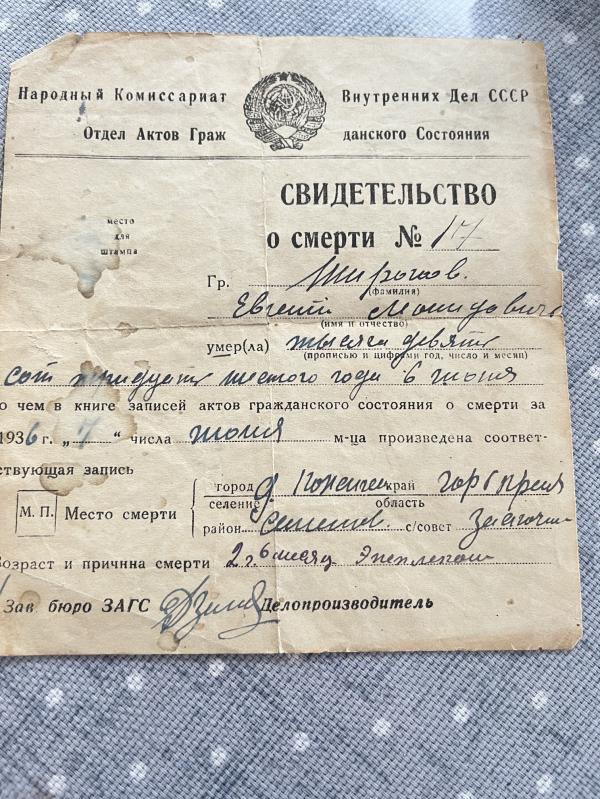 Народный Комиссариат Внутренних Дел СССР
Отдел Актов Граж данского Состояния
СВИДЕТЕЛЬСТВО
место
для
штампа
о смерти № 17
Гр.
(фамилия)
Евгений
(имя и отчество)
умер(ла) тысяча девять
(прописью и цифрами год, число и месяц)
сот тридцать шестого года 6 июня
о чем в книге записей актов гражданского состояния о смерти за
1936 г. „ 7 “ числа июня м-ца произведена соответ-
ствующая запись
город край
селение д. область
М. П. Место смерти
район с/совет
Возраст и причина смерти 2 г. 6 месяц
Зав бюро ЗАГС Делопроизводитель